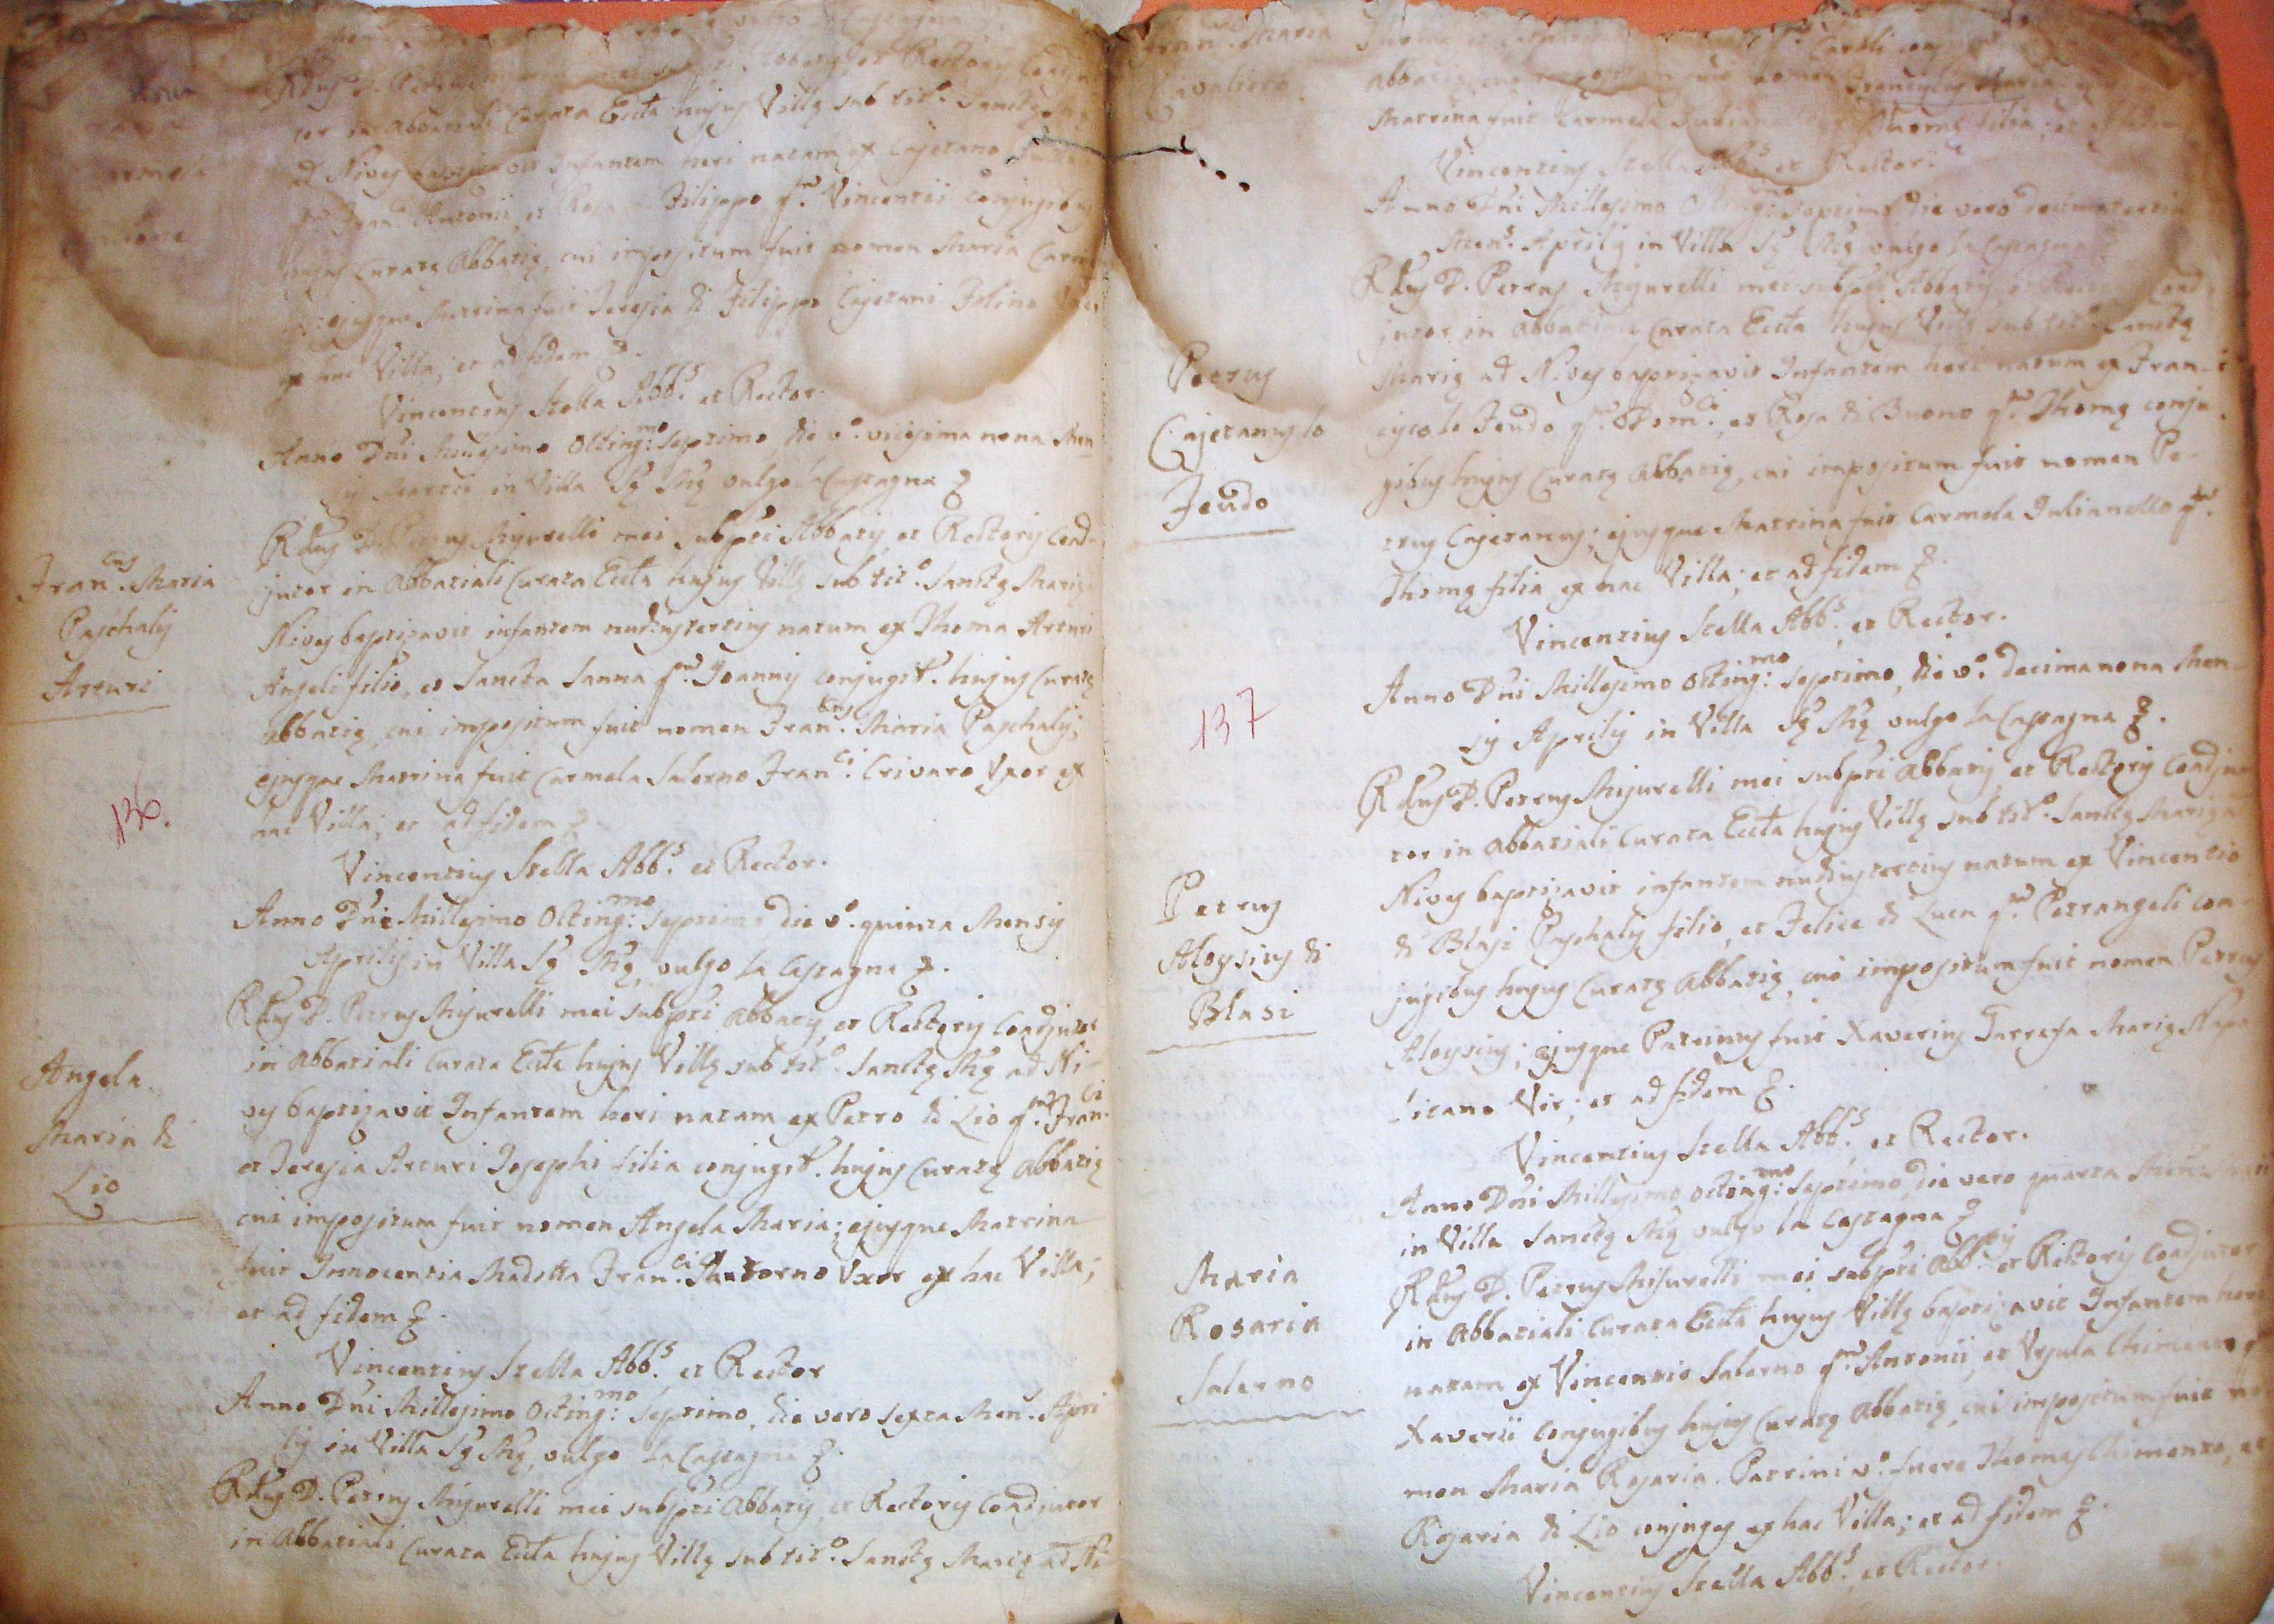 Maria
Carmela
vulgo la Castagna
Rdus D. Petrus Abbatis, et Rectoris Coadju-
tor in Abbatiali Curata Eccta hujus Villę sub titº. Sanctę Marię
ad Nives baptizavit Infantem heri natam ex Cajetano
qm. Franci. Antonii, et Rosa di Filippo qm. Vincentii conjugibus
hujus Curatę Abbatię, cui impositum fuit nomen Maria Carmela
ejusque Matrina fuit Teresia di Filippo Cajetani Folino Uxor
ex hac Villa; et ad fidem &.
Vincentius Stella Abbs. et Rector.
Anno Dni Millesimo Octing:mo septimo, die vº. vicesima nona Men-
sis Martii in Villa Sę Mę vulgo la Castagna &
Francus. Maria
Paschalis
Arturi
Rdus D. Petrus Misurelli mei subpti Abbatis, et Rectoris Coad-
jutor in Abbatiali Curata Eccta hujus Villę sub titº. Sanctę Marię
Nives baptizavit infantem nudiustertius natum ex Thoma Arturi
Angeli filio, et Sancta Sanna qm. Joannis conjugibs. hujus Curatę
Abbatię, cui impositum fuit nomen Francus. Maria Paschalis;
ejusque Matrina fuit Carmela Salerno Franci. Crivaro Uxor ex
hac Villa; et ad fidem &.
136.
Vincentius Stella Abbs. et Rector.
Anno Dni Millesimo Octing:mo septimo die vº. quinta Mensis
Aprilis in Villa Sę Mę, vulgo la Castagna &.
Angela
Maria di
Lio
Rdus D. Petrus Misurelli mei subpti Abbatis, et Rectoris Coadjutor
in Abbatiali Curata Eccta hujus Villę sub titº. Sanctę Mę ad Ni-
ves baptizavit Infantem heri natam ex Petro di Lio qm. Franci.
et Teresia Arcuri Josephi filia conjugibs. hujus Curatę Abbatię
cui impositum fuit nomen Angela Maria; ejusque Matrina
fuit Innocentia Madotta Franci. Uxor ex hac Villa;
et ad fidem &.
Vincentius Stella Abbs. et Rector
Anno Dni Millesimo Octing:mo septimo, die vero sexta Men. Apri
lis in Villa Sę Mę, vulgo la Castagna &.
Rdus D. Petrus Misurelli mei subpti Abbatis, et Rectoris Coadjutor
in Abbatiali Curata Eccta hujus Villę sub titº. Sanctę Marię ad Ni
Francus. Maria
Cavaliero
Caroli conj
Abbatię, cui impositum fuit nomen Franciscus Maria
Matrina fuit Carmela Thomę filia; et ad fidem
Vincentius Stella Abbs. et Rector.
Anno Dni Millesimo Octing:mo septimo, die vero decimatertia
Mens. Aprilis in Villa Sę Mę vulgo la Castagna
Petrus
Cajetanus lo
Feudo
Rdus D. Petrus Misurelli mei subpti Abbatis, et Rectoris Coad-
jutor in Abbatiali Curata Eccta hujus Villę sub titº. Sanctę
Marię ad Nives baptizavit Infantem heri natum ex Fran-
cisco lo Feudo qm. Domci. et Rosa di Buono qm. Thomę conju-
gibus hujus Curatę Abbatię, cui impositum fuit nomen Pe-
trus Cajetanus; ejusque Matrina fuit Carmela Julianello qm.
Thomę filia ex hac Villa; et ad fidem &.
Vincentius Stella Abbs. et Rector.
Anno Dni Millesimo Octing:mo septimo, die vº. decimanona Men-
sis Aprilis in Villa Sę Mę vulgo la Castagna &.
137
Petrus
Aloysius di
Blasi
Rdus D. Petrus Misurelli mei subpti Abbatis, et Rectoris Coadju
tor in Abbatiali Curata Eccta hujus Villę sub titº. Sanctę Marię ad
Nives baptizavit infantem nudiustertius natum ex Vincentio
di Blasi Paschalis filio, et Felice di Luca qm. Petrangeli con-
jugibus hujus Curatę Abbatię, cui impositum fuit nomen Petrus
Aloysius; ejusque Patrinus fuit Xaverius Tarrafa Marię Napo-
litano Vir; et ad fidem &.
Vincentius Stella Abbs. et Rector.
Anno Dni Millesimo Octing:mo septimo, die vero quarta Mensis Maii
in Villa Sanctę Mę vulgo la Castagna &
Maria
Rosaria
Salerno
Rdus D. Petrus Misurelli mei subpti Abbtis et Rectoris Coadjutor
in Abbatiali Curata Eccta hujus Villę baptizavit Infantem heri
natam ex Vincentio Salerno qm. Antonii, et Ursula Chimento qm
Xaverii conjugibus hujus Curatę Abbatię, cui impositum fuit no
men Maria Rosaria. Patrini vº. fuere Thomas Chimento, et
Rosaria di Lio conjuges ex hac Villa; et ad fidem &.
Vincentius Stella Abbs. et Rector.